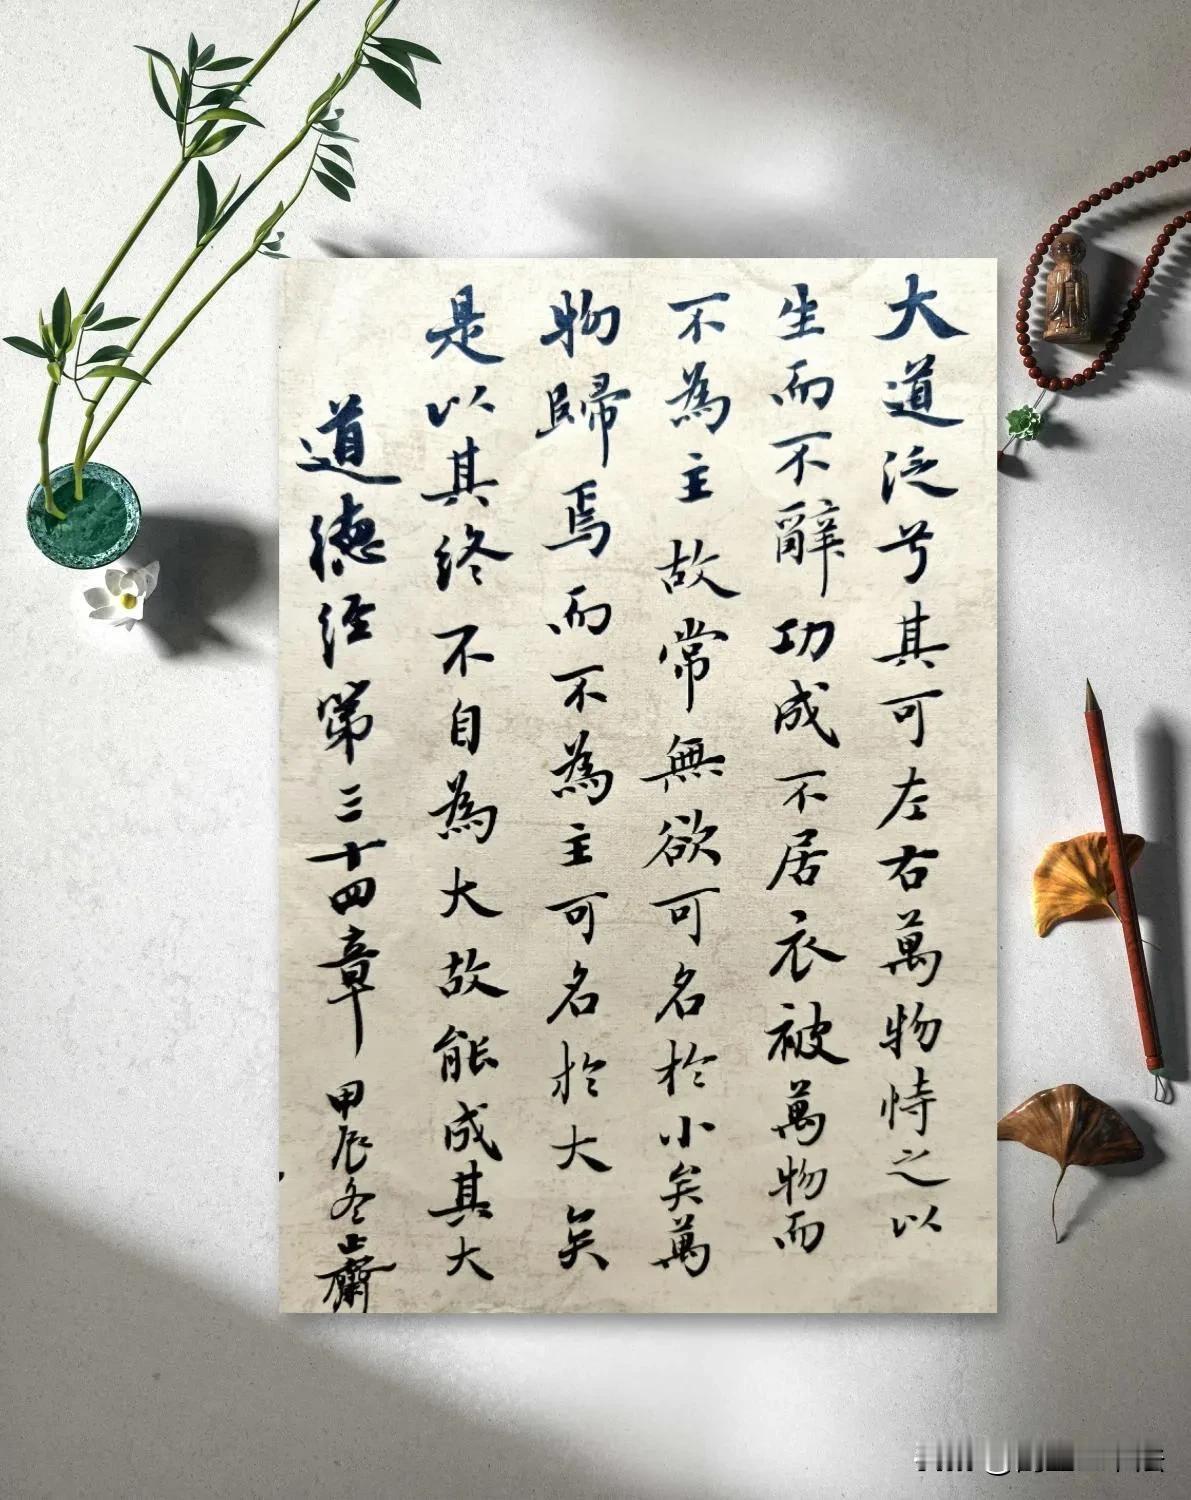 大道泛兮其可左右萬物恃之以
生而不辭功成不居衣被萬物而
不為主故常無欲可名於小矣萬
物歸焉而不為主可名於大矣
是以其終不自為大故能成其大
道德經第三十四章 甲辰冬止齋